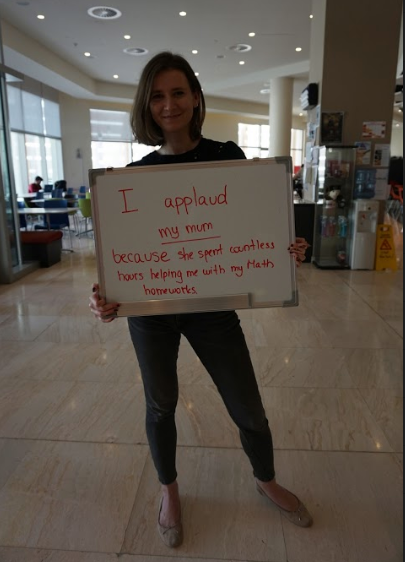 I applaud
my mum
because she spent countless
hours helping me with my Math
homeworks